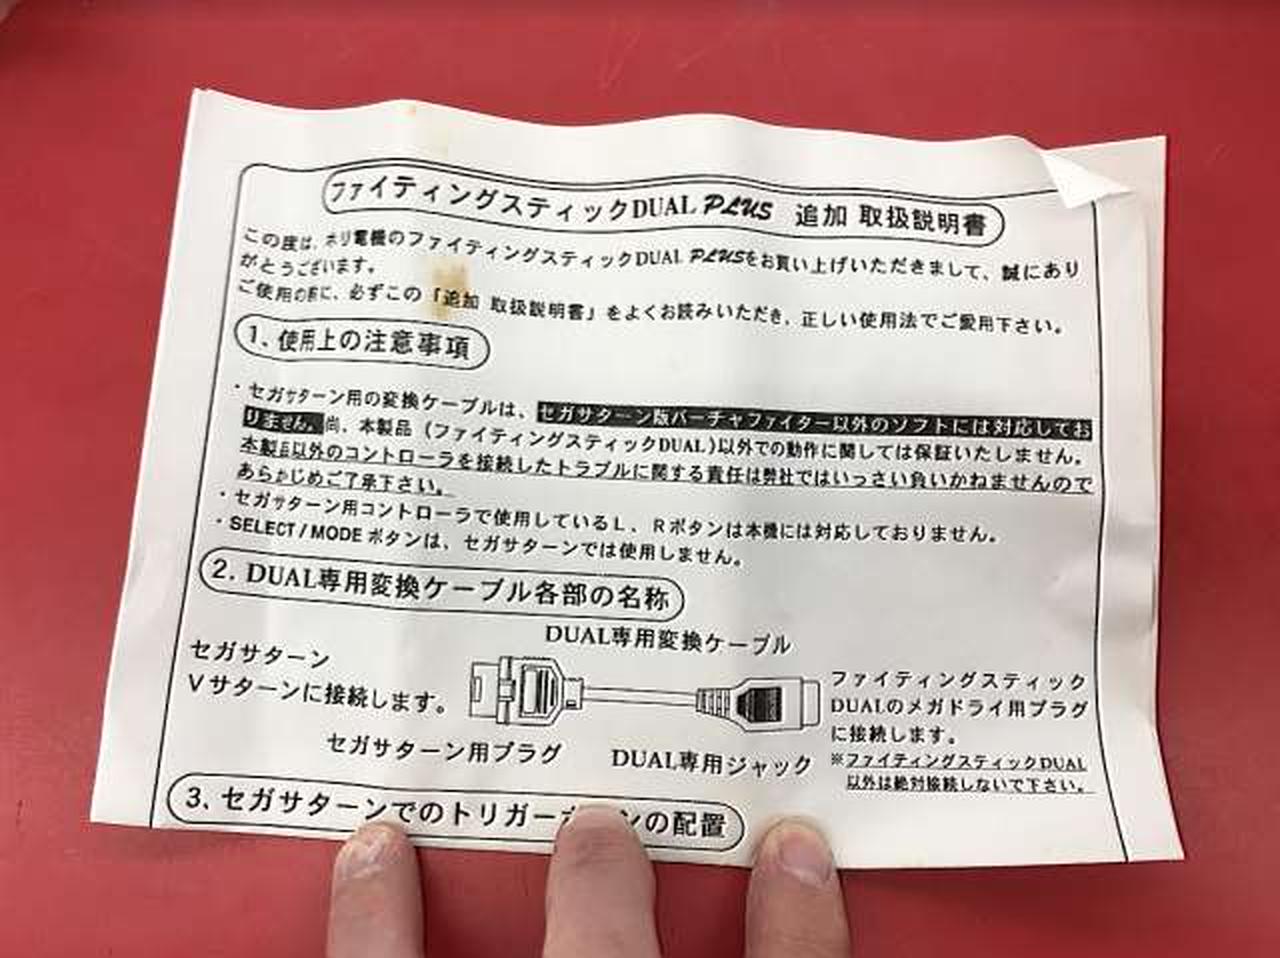 ファイティングスティックDUAL PLUS 追加 取扱説明書
この度は、ホリ電機のファイティングスティックDUAL PLUSをお買い上げいただきまして、誠にあり
がとうございます。
ご使用の前に、必ずこの「追加 取扱説明書」をよくお読みいただき、正しい使用法でご愛用下さい。
1. 使用上の注意事項
・セガサターン用の変換ケーブルは、セガサターン版バーチャファイター以外のソフトには対応してお
りません。尚、本製品（ファイティングスティックDUAL）以外での動作に関しては保証いたしません。
本製品以外のコントローラを接続したトラブルに関する責任は弊社ではいっさい負いかねませんので
あらかじめご了承下さい。
・セガサターン用コントローラで使用しているL、Rボタンは本機には対応しておりません。
・SELECT/MODE ボタンは、セガサターンでは使用しません。
2. DUAL専用変換ケーブル各部の名称
DUAL専用変換ケーブル
セガサターン
Vサターンに接続します。
セガサターン用プラグ
DUAL専用ジャック
ファイティングスティック
DUALのメガドライ用プラグ
に接続します。
※ファイティングスティックDUAL
以外は絶対接続しないで下さい。
3. セガサターンでのトリガーボタンの配置